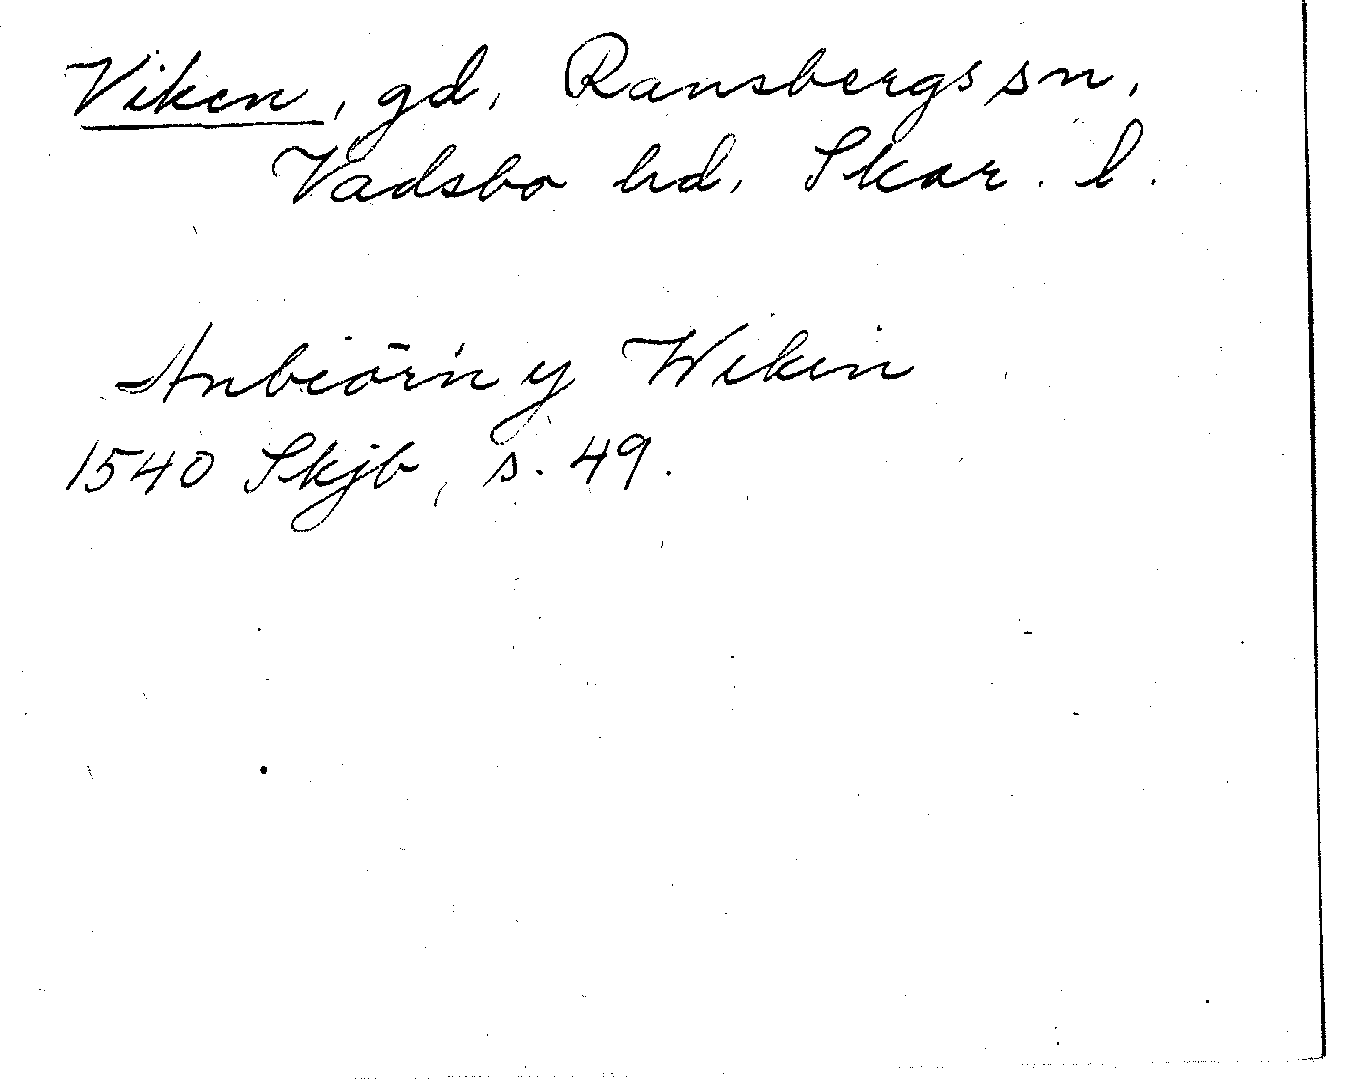 Viken, gd, Ransbergs sn,
Vadsbo hd, Skar. l.
Anbiörn y Wikin
1540 Skjb, s. 49.